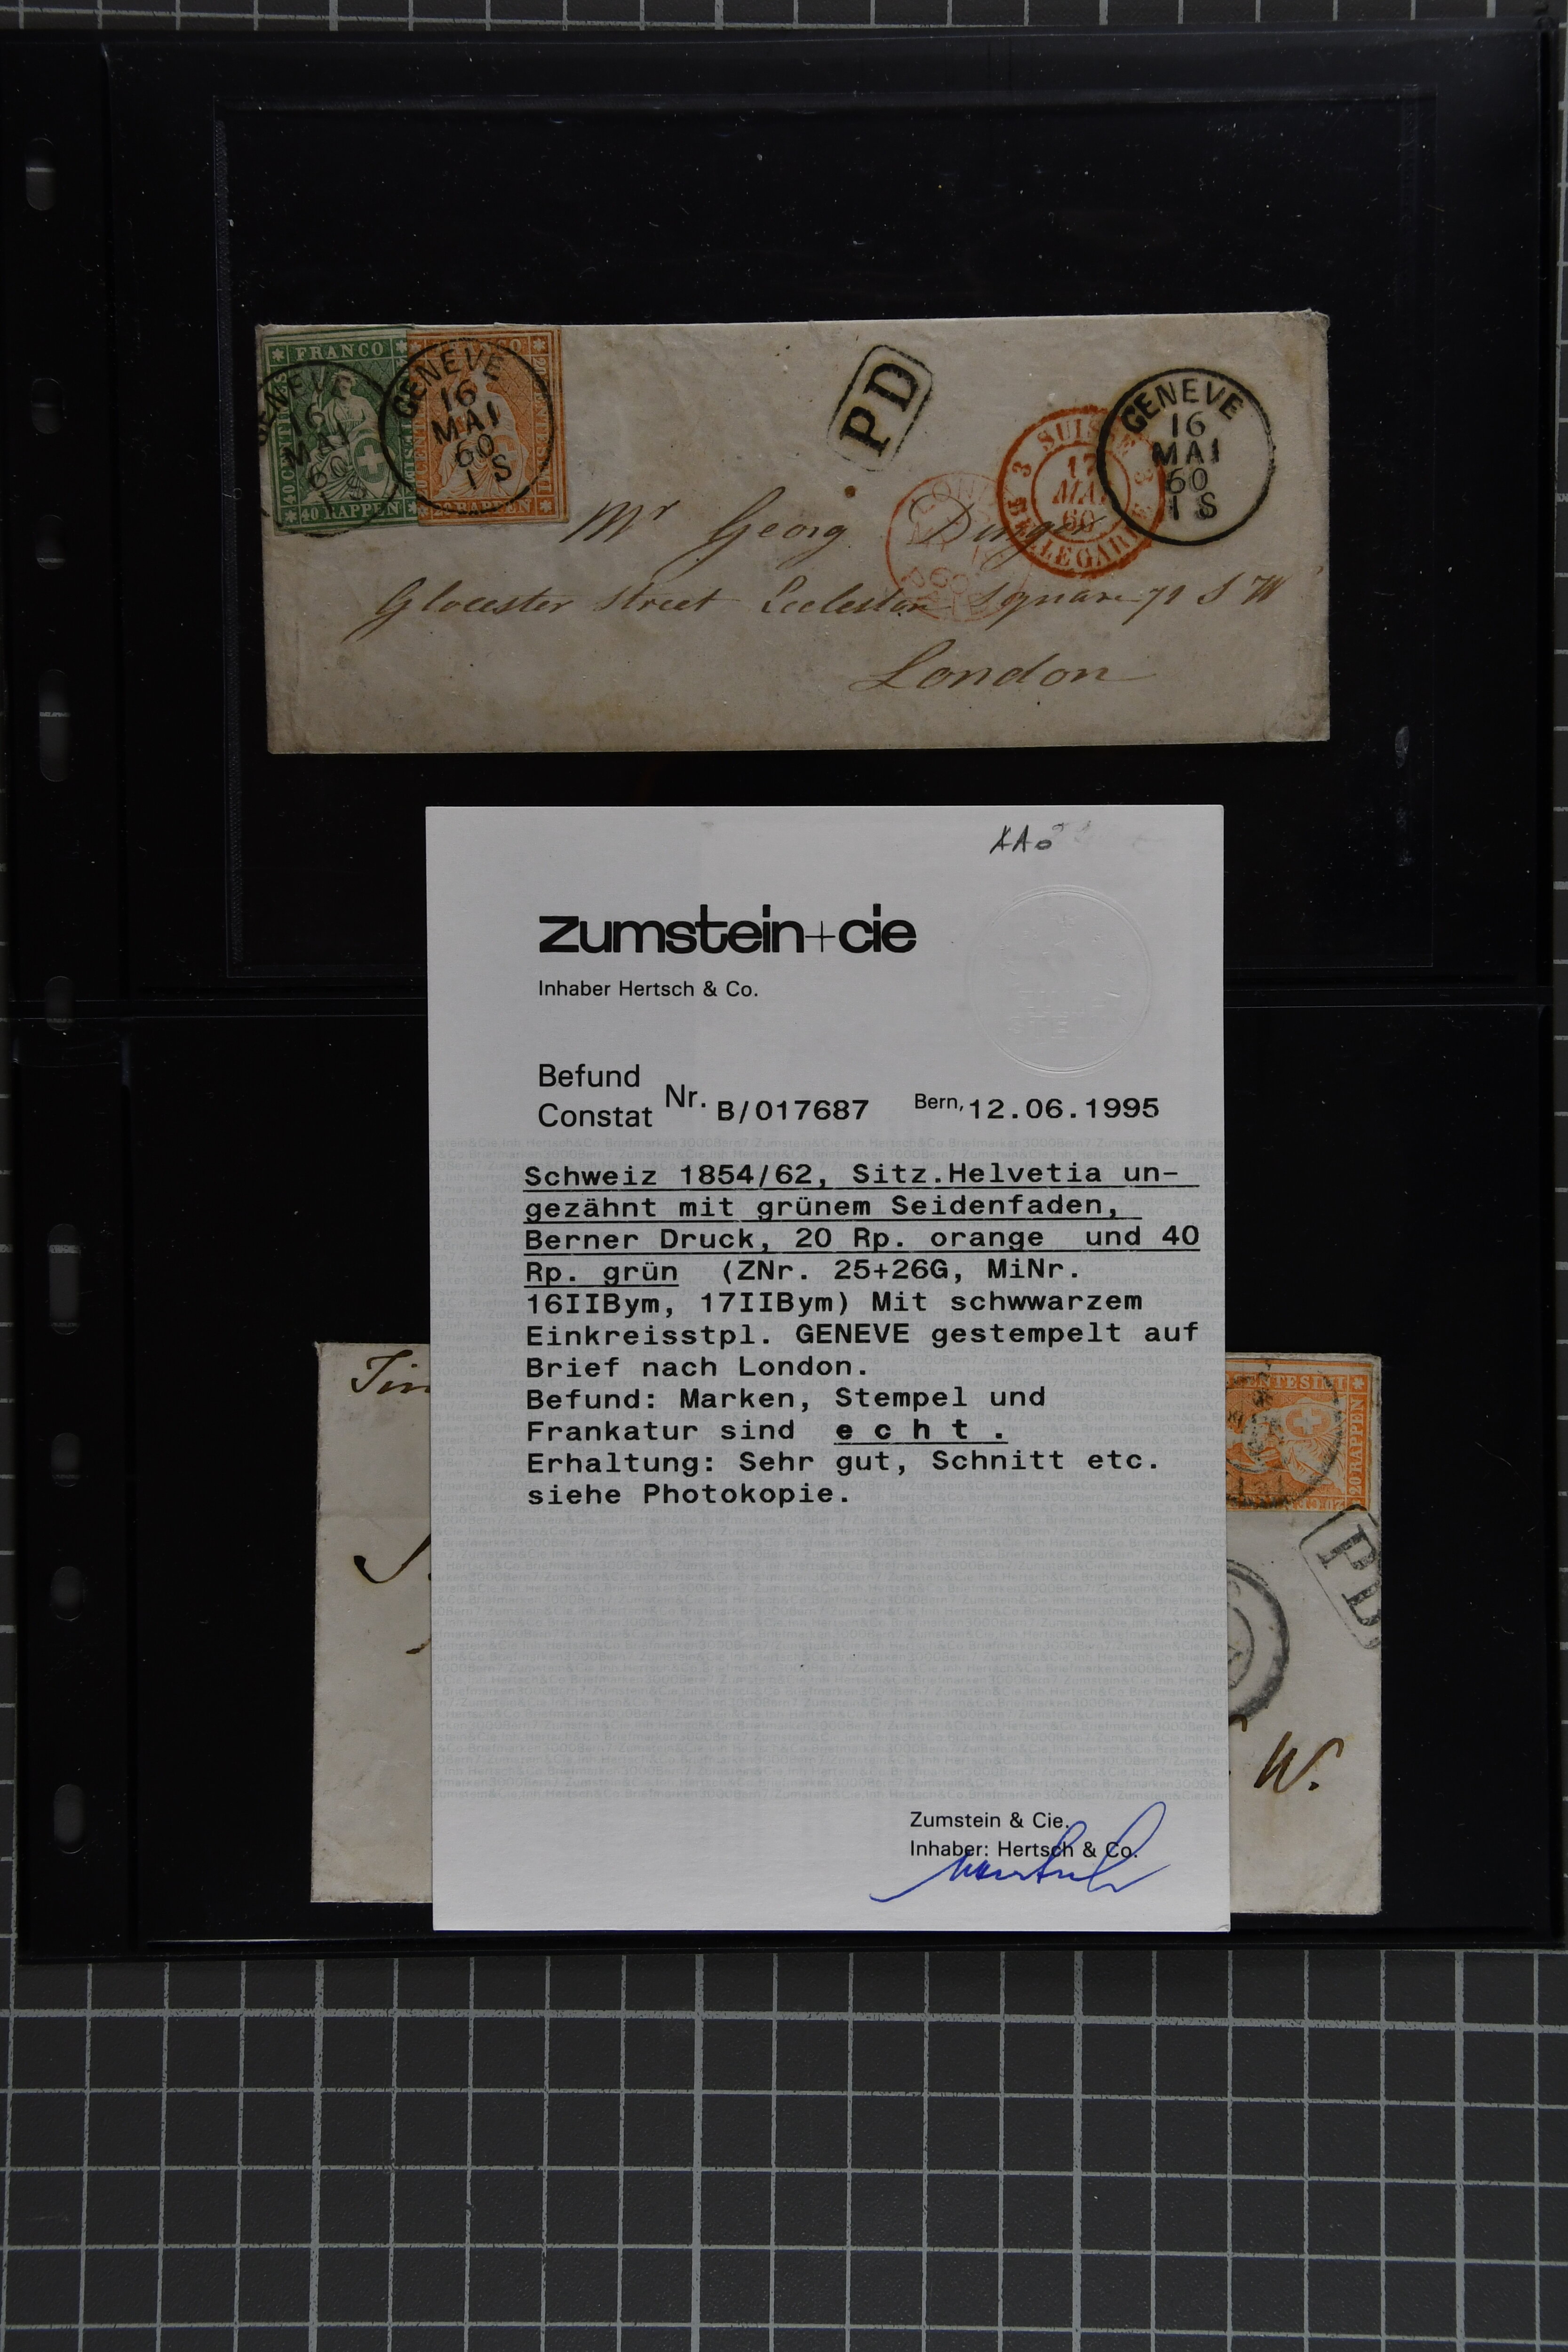 FRANCO
40 RAPPEN
20 RAPPEN
GENEVE
16
MAI
60
1 S
GENEVE
16
MAI
60
1 S
PD
SUISSE
17
MAI
60
3 BELLEGARDE 3
GENEVE
16
MAI
60
1 S
Mr Georg
Glocester street Eccleston Square 71 S W
London
zumstein+cie
Inhaber Hertsch & Co.
Befund
Constat Nr. B/017687 Bern, 12.06.1995
Schweiz 1854/62, Sitz.Helvetia un-
gezähnt mit grünem Seidenfaden,
Berner Druck, 20 Rp. orange und 40
Rp. grün (ZNr. 25+26G, MiNr.
16IIBym, 17IIBym) Mit schwwarzem
Einkreisstpl. GENEVE gestempelt auf
Brief nach London.
Befund: Marken, Stempel und
Frankatur sind e c h t .
Erhaltung: Sehr gut, Schnitt etc.
siehe Photokopie.
20 RAPPEN
PD
W.
Zumstein & Cie.
Inhaber: Hertsch & Co.